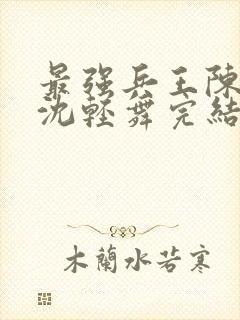 最强兵王陳
沈輕舞完結
木蘭水若寒